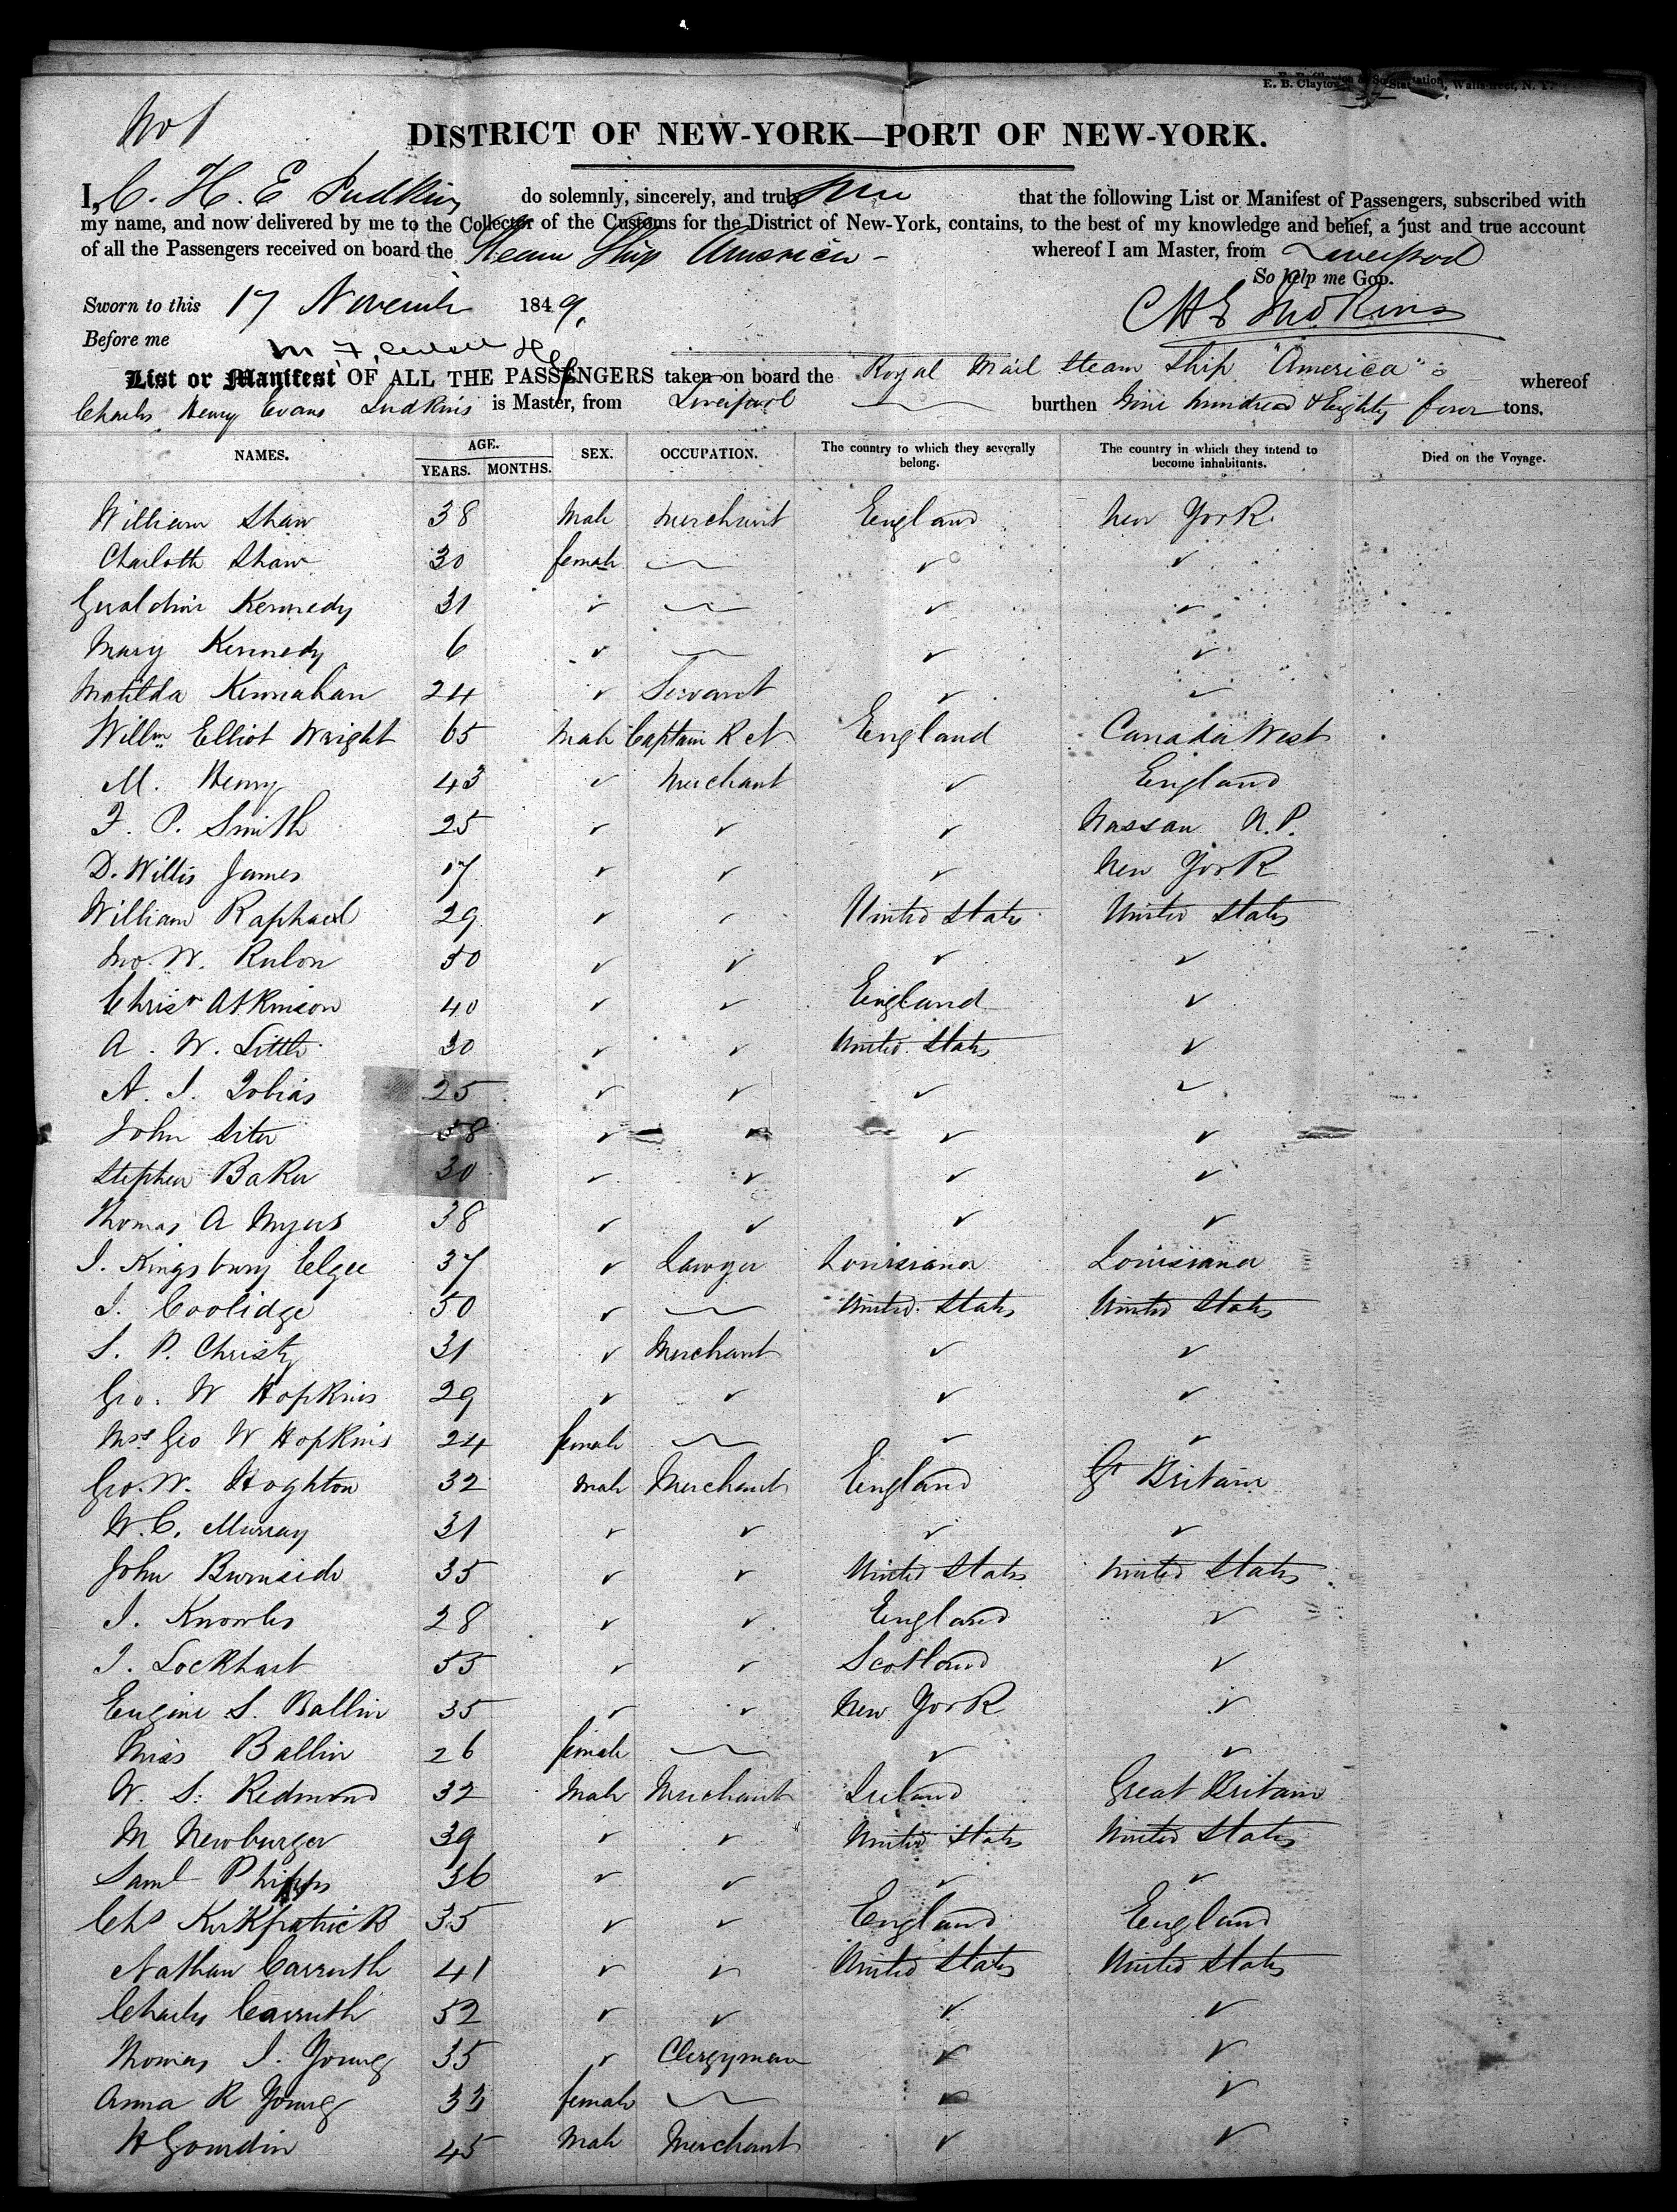 E. B. Clayton
No 1
DISTRICT OF NEW-YORK—PORT OF NEW-YORK.
I, C. H. E Judkins do solemnly, sincerely, and truly that the following List or Manifest of Passengers, subscribed with
my name, and now delivered by me to the Collector of the Customs for the District of New-York, contains, to the best of my knowledge and belief, a just and true account
of all the Passengers received on board the Steam Ship America - whereof I am Master, from Liverpool
So help me GOD.
Sworn to this 17 Novemb 1849, C H E Judkins
Before me
List or Manifest OF ALL THE PASSENGERS taken on board the Royal Mail Steam Ship "America" whereof
Charles Henry Evans Judkins is Master, from Liverpool burthen Nine hundred & Eighty four tons.
NAMES. AGE. YEARS. MONTHS. SEX. OCCUPATION. The country to which they severally belong. The country in which they intend to become inhabitants. Died on the Voyage.
William Shaw 38 Male Merchant England New York
Charlotte Shaw 30 female ✓ ✓
Geraldine Kennedy 31 ✓ ✓ ✓
Mary Kennedy 6 ✓ ✓ ✓
Matilda Kennahan 24 ✓ Servant ✓ ✓
Willm Elliot Wright 65 Male Captain R N England Canada West
M. Henry 43 ✓ Merchant ✓ England
F. P. Smith 25 ✓ ✓ ✓ Nassau N.P.
D. Willis James 17 ✓ ✓ ✓ New York
William Raphael 29 ✓ ✓ United States United States
Jno. W. Rulon 50 ✓ ✓ ✓ ✓
Christr Atkinson 40 ✓ ✓ England ✓
A. W. Little 30 ✓ ✓ United States ✓
A. I. Tobias 25 ✓ ✓ ✓ ✓
John Siter 58 ✓ ✓ ✓ ✓
Stephen Baker 30 ✓ ✓ ✓ ✓
Thomas A Myers 38 ✓ ✓ ✓ ✓
I. Kingsbury Elgee 37 ✓ Lawyer Louisiana Louisiana
I. Coolidge 50 ✓ United States United States
S. P. Christy 31 ✓ Merchant ✓ ✓
Geo. W Hopkins 29 ✓ ✓ ✓ ✓
Mrs Geo W Hopkins 24 female ✓ ✓
Geo. W. Hoghton 32 Male Merchant England Gt Britain
W. C. Murray 31 ✓ ✓ ✓ ✓
John Burnside 35 ✓ ✓ United States United States
I. Knowles 28 ✓ ✓ England ✓
I. Lockhart 55 ✓ ✓ Scotland ✓
Eugine S. Ballin 35 ✓ ✓ New York ✓
Miss Ballin 26 female ✓ ✓
W. S. Redmond 32 Male Merchant Ireland Great Britain
M Newburger 39 ✓ ✓ United States United States
Saml Phipps 36 ✓ ✓ ✓ ✓
Chs Kirkpatrick 35 ✓ ✓ England England
Nathan Carruth 41 ✓ ✓ United States United States
Charles Carruth 52 ✓ ✓ ✓ ✓
Thomas I. Young 35 ✓ Clergyman ✓ ✓
Anna R Young 33 female ✓ ✓
H Gourdin 45 Male Merchant ✓ ✓